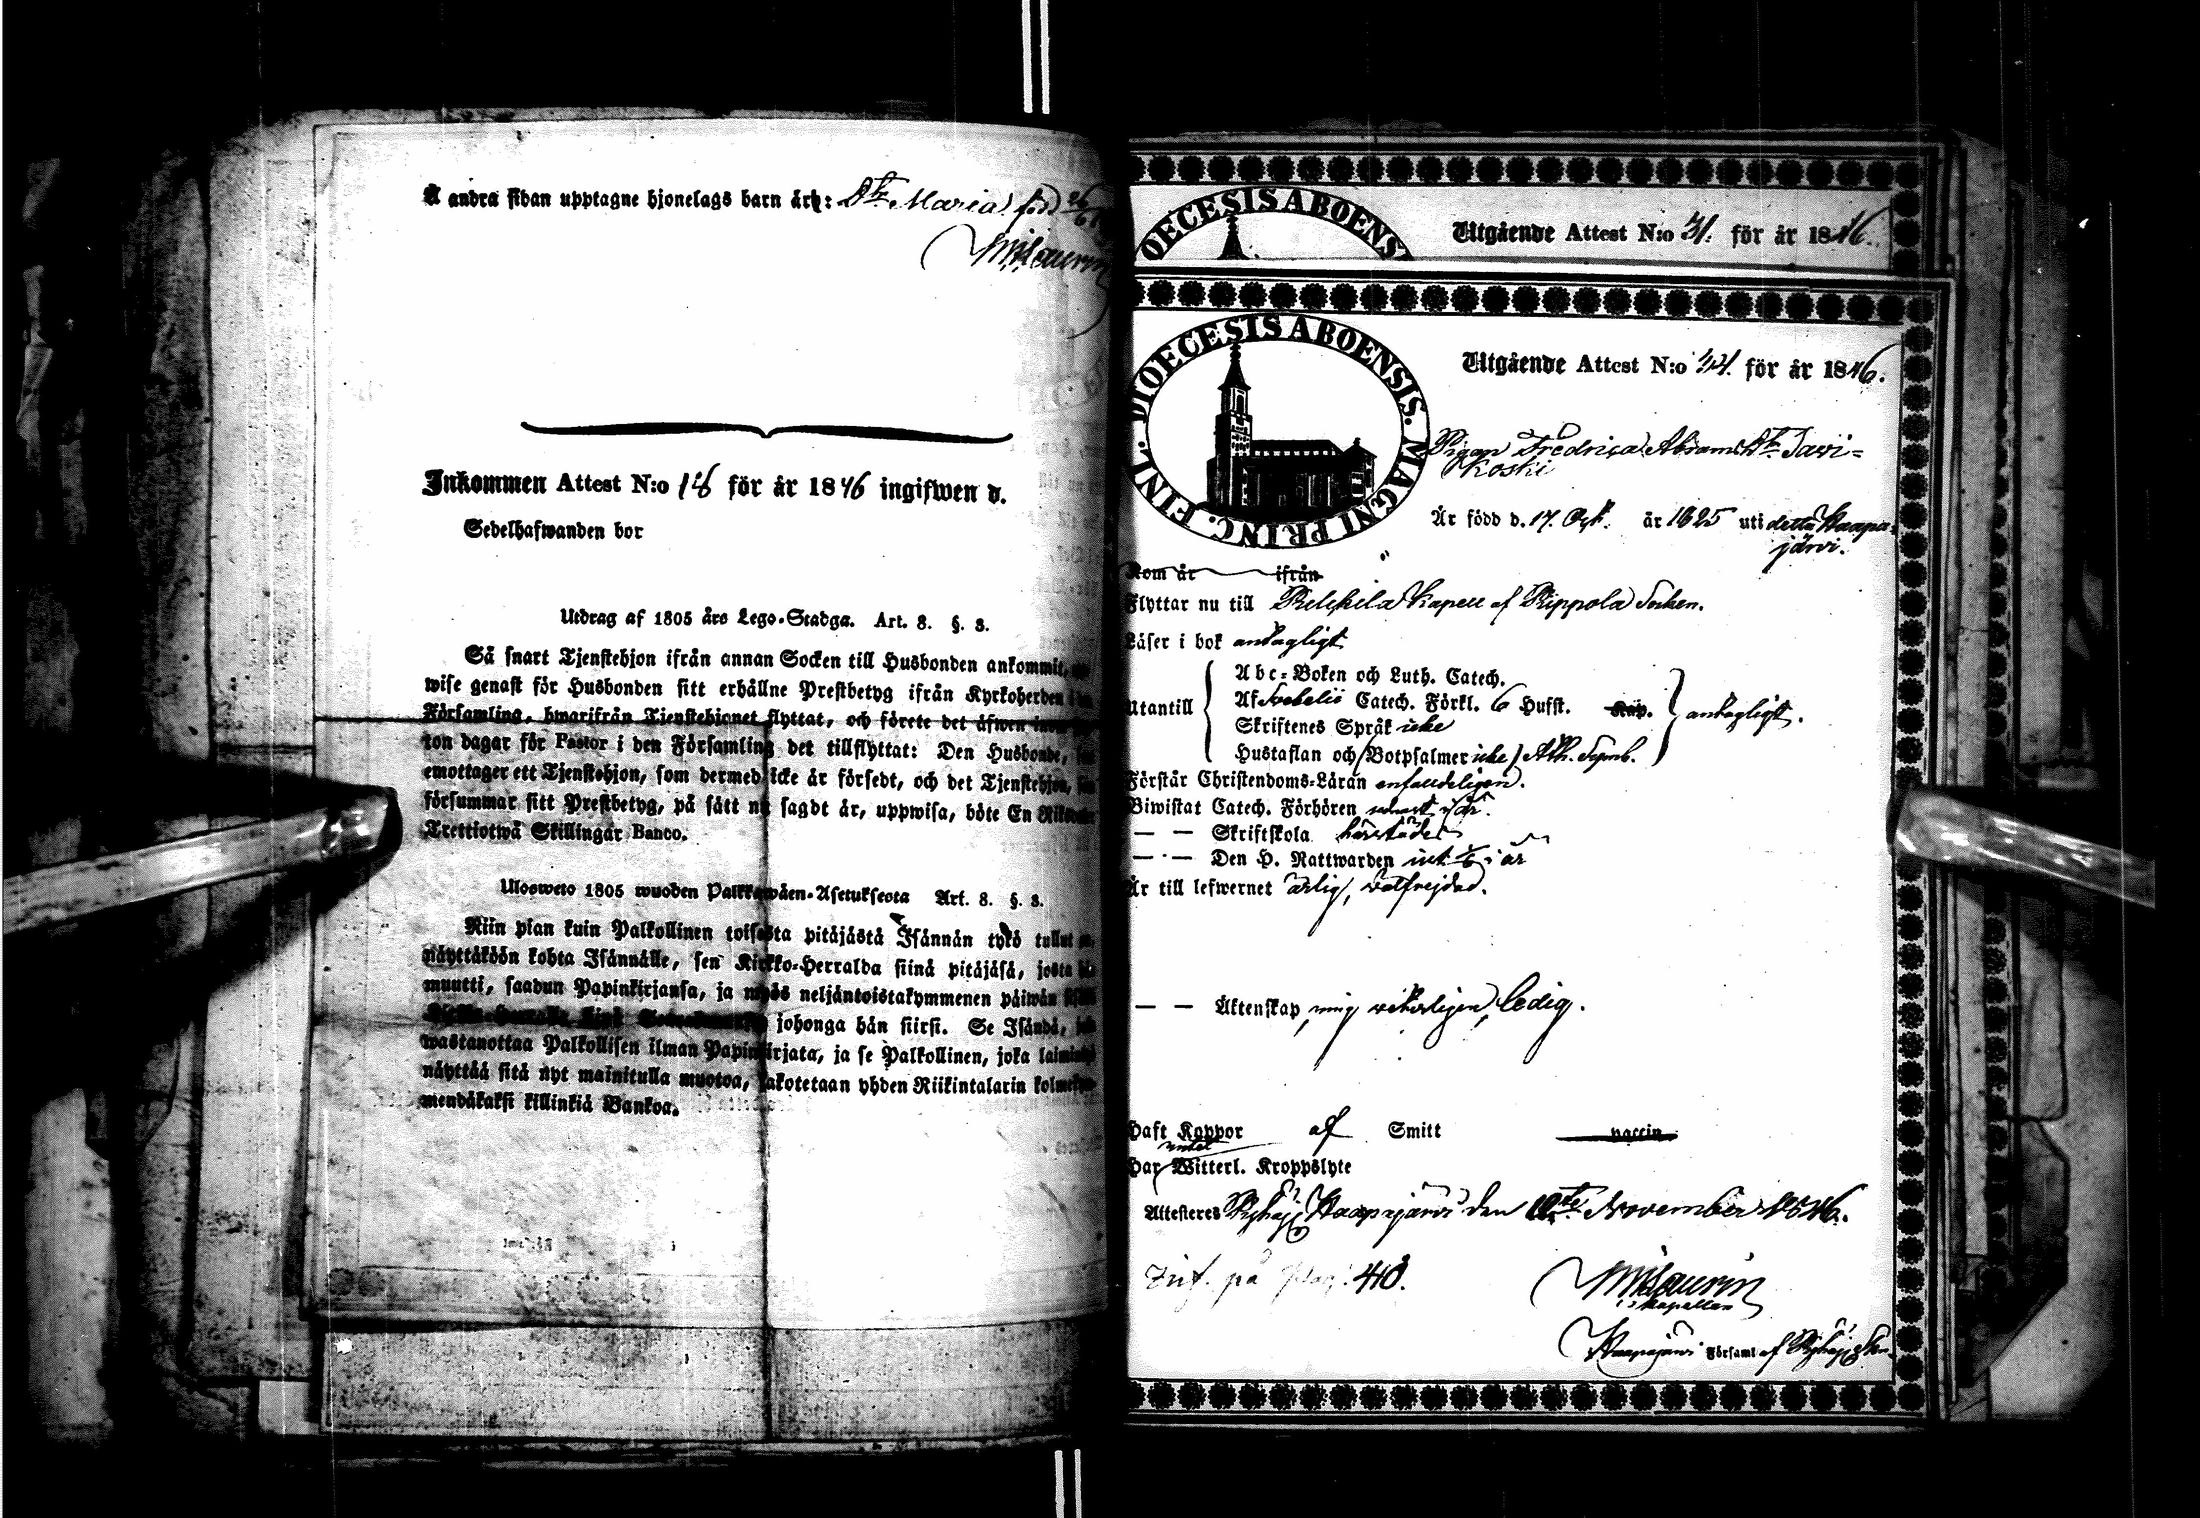 Å andra sidan upptagne hjonelags barn äro: Dtr Maria född 26
Inkommen Attest N:o 18 för år 1846 ingifwen d.
Sedelhafwanden bor
Utdrag af 1805 års Lego-Stadga. Art. 8. §. 3.
Så snart Tjenstehjon ifrån annan Socken till Husbonden ankommit,
wise genast för Husbonden sitt erhållne Prestbetyg ifrån Kyrkoherden
Församling, hwarifrån Tjenstehjonet flyttat, och förete det äfwen
ton dagar för Pastor i den Församling det tillflyttat: Den Husbonde,
emottager ett Tjenstehjon, som dermed icke är försedt, och det Tjenstehjon,
försummar sitt Prestbetyg, på sätt nu sagdt är, uppwisa, böte En
Trettiotwå Skillingar Banco.
Ulosweto 1805 wuoden Palkkawäen-Asetuksesta Art. 8. §. 3.
Niin pian kuin Palkollinen toisesta pitäjästä Isännän tykö tullut
näyttäköön kohta Isännälle, sen Kirkko-Herralda siinä pitäjäsä, josta
muutti, saadun Papinkirjansa, ja myös neljäntoistakymmenen päiwän
johonga hän siirsi. Se Isändä,
wastanottaa Palkollisen ilman Papinkirjata, ja se Palkollinen, joka
näyttää sitä nyt mainitulla muotoa, sakotetaan yhden Riikintalarin
mendäkaksi killinkiä Bankoa.
DIOECESIS ABOENS
Utgående Attest N:o 31. för år 1846.
FINL. DIOECESIS ABOENSIS. MAGNI PRINC.
Utgående Attest N:o 34. för år 1846.
Pigan Fredrica Abrams Dtr Sawi=
koski
Är född d. 17. Oct. år 1825 uti detta Haapa-
järvi.
Kom år ifrån
Flyttar nu till Pelkilä Kapell af Pippola Socken.
Läser i bok antagligt
Abc-Boken och Luth. Catech.
Utantill Af Svebelii Catech. Förkl. 6 Hufst. Kap. antagligt.
Skriftenes Språk icke
Hustaflan och (Botpsalmer icke) Ath. Symb.
Förstår Christendoms-Läran enfaldeligen.
Biwistat Catech. Förhören senast i år.
— — Skriftskola härstädes
— — Den H. Nattwarden sist i år
Är till lefwernet ärlig, wälfrejdad.
— — Äktenskap, mig weterligen, ledig.
Haft Koppor af Smitt vaccin
Har Witterl. Kroppslyte
Attesteres Pyhäj. Haapajärvi den November 1846.
Inf. på pag. 410.
Kapellan
Haapajärvi Församl. af Pyhäj.